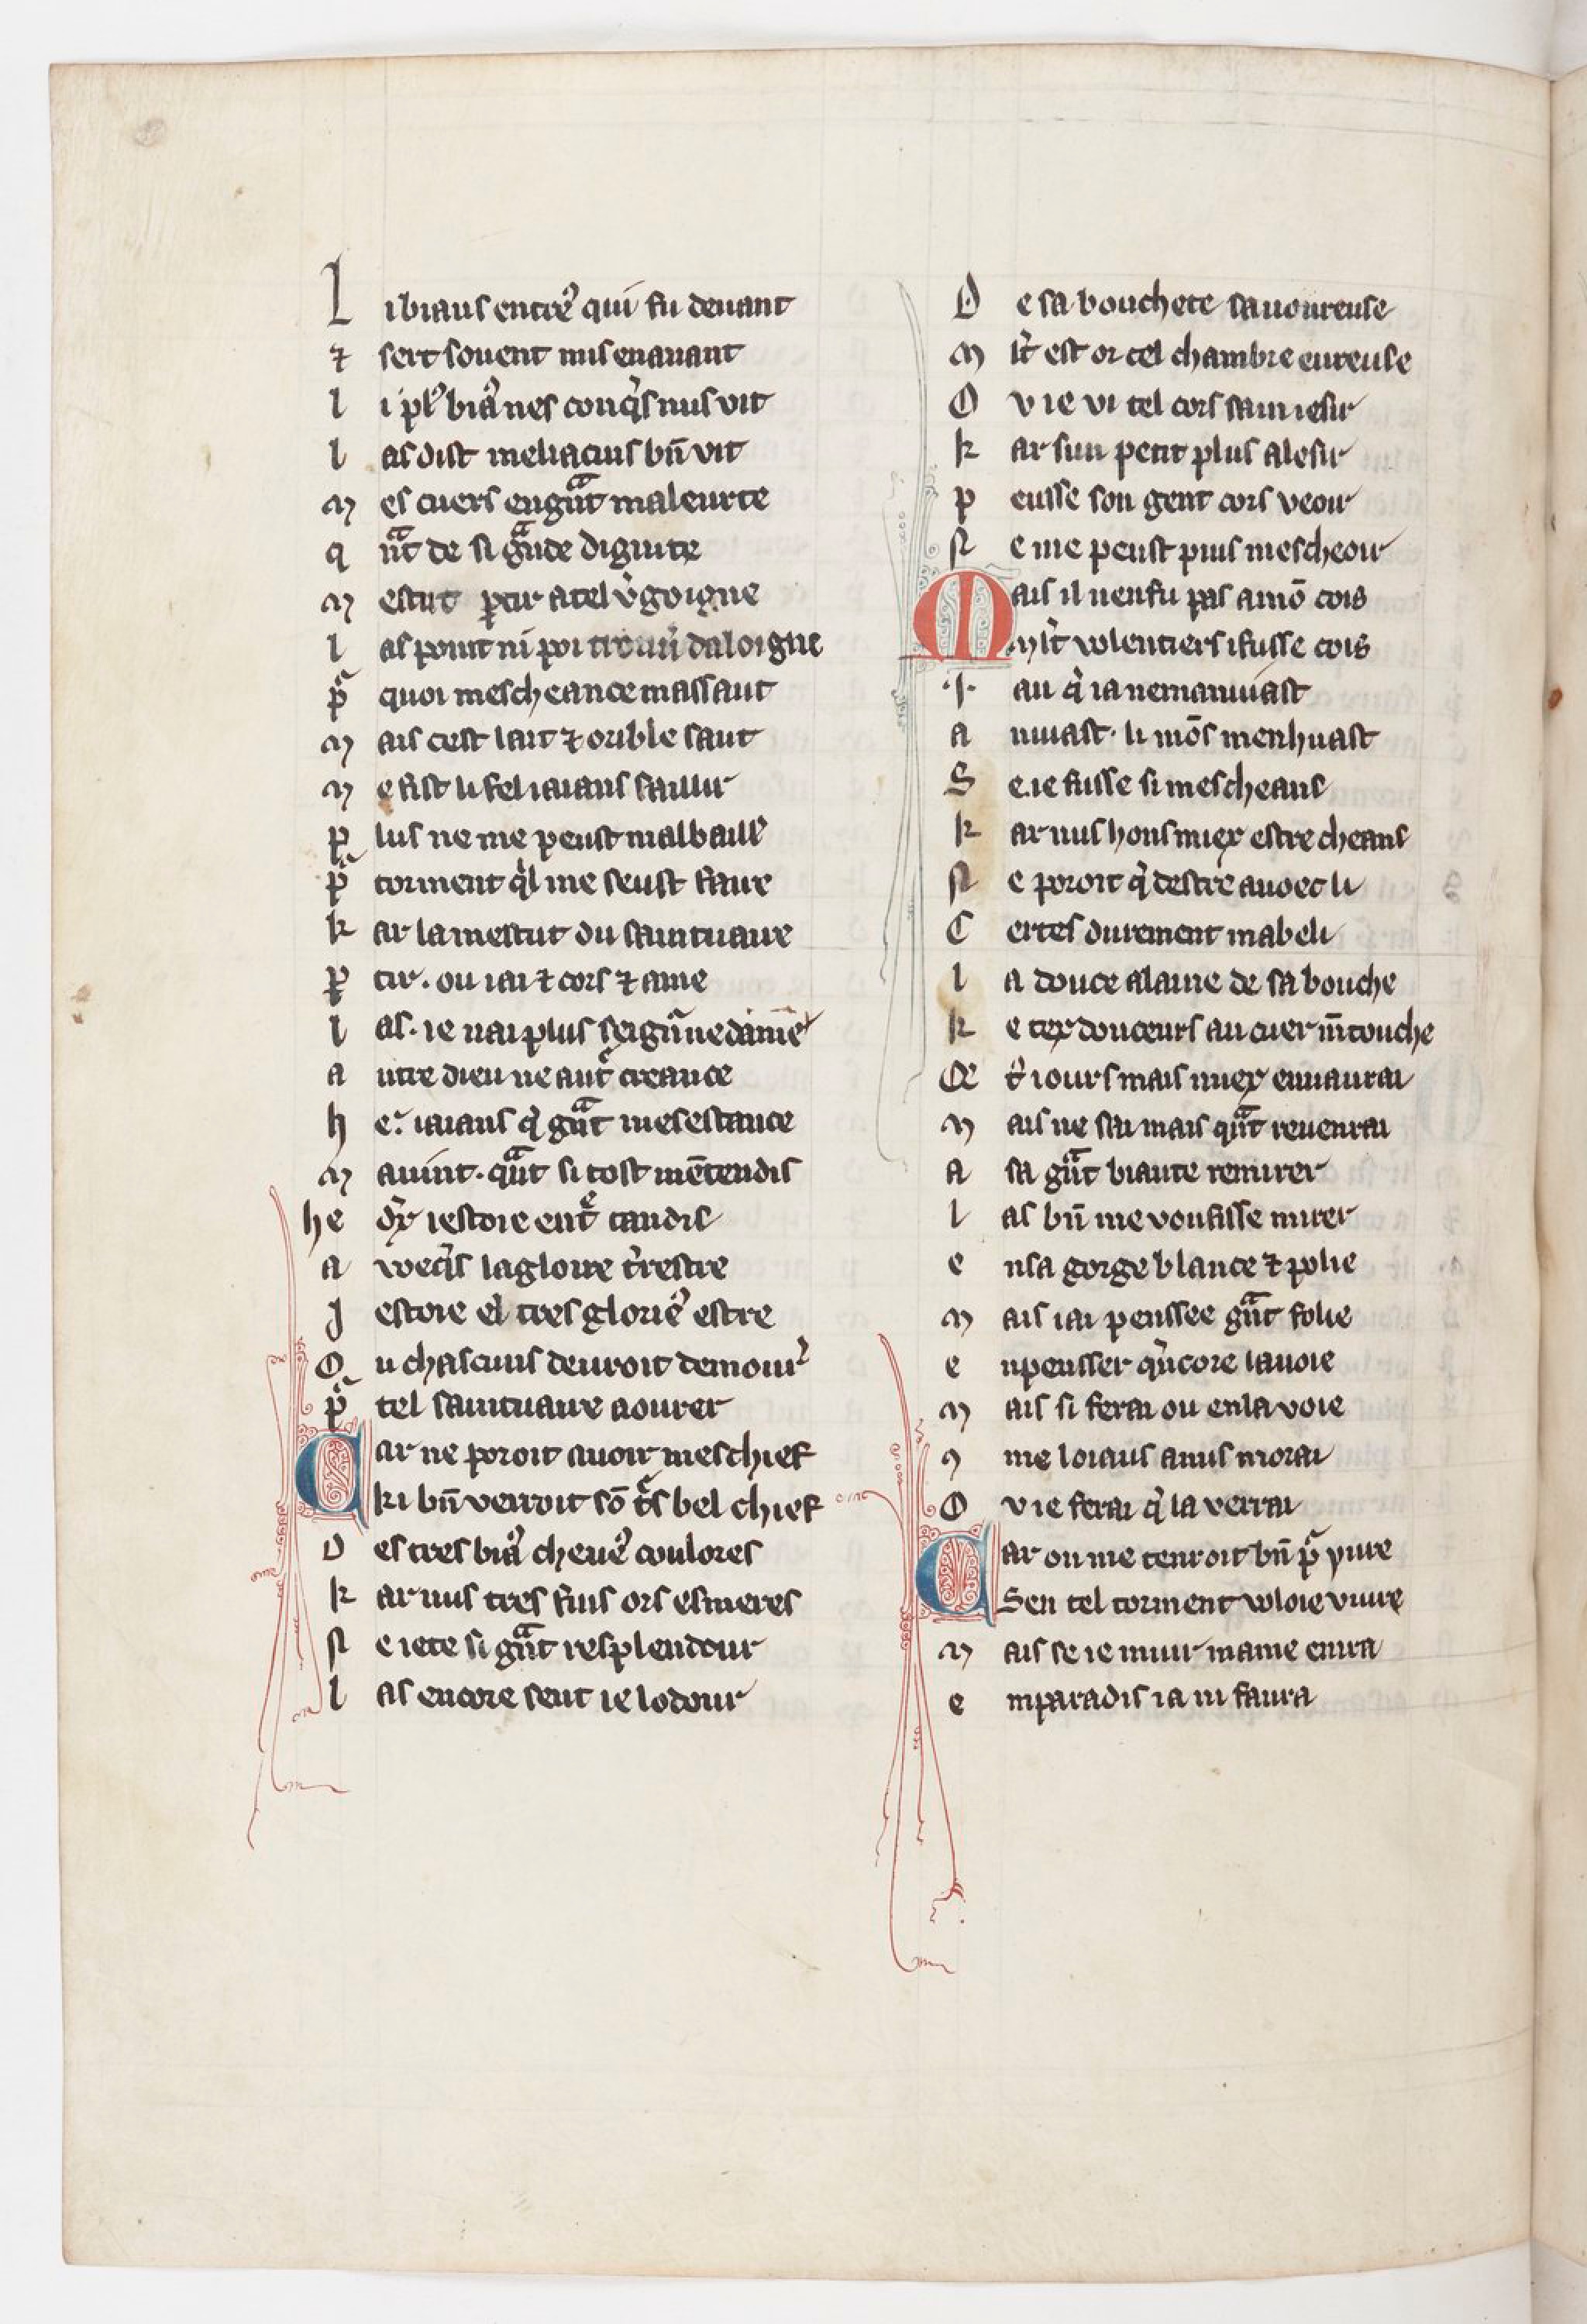 L ibiaus entre᷒ qui fu deuant
⁊ sert souent mis enauant
l i pl᷒ bia᷒ nes conq̾s nus vit
l as dist meliacins bn̄ vit
m es cuers engnͣt maleurte
q nͣt de si gnͣde dignite
m estut ꝑtir a tel v̾goigne
l as point ni poi daloigne
pͬ quoi mescheance massaut
m ais cest lait ⁊ orible saut
m e fist li fel iaians saillir
p lus ne me peust malbaill᷒
pͬ torment q̾l me seust faire
k ar la mestut du saintuaire
ꝑ tir. ou iai ⁊ cors ⁊ ame
l as. ie nai plus seignͬ ne dame
a utre dieu ne autͬ creance
h e. iaians q̾ gnͣt mesestance
m auint. qnͣt si tost mētendis
he dx̾ iestoie entͤ tandis
a wecq̾s la gloire t̾restre
J estoie el tres glorie᷒ estre
O u chascuns deuroit demour̾
pͬ tel saintuaire aourer
C ar ne poroit auoir meschief
ki bn̄ verroit sō tͬs bel chief
D es tres bia᷒ cheue᷒ coulores
k ar nus tres fins ors esmeres
N e iete si gnͣt resplendour
l as encore sent ie lodour
D e sa bouchete sauoureuse
m lt̾ est or cel chambre eureuse
O v ie vi tel cors sain iesir
k ar sun petit plus a lesir
p euisse son gent cors veoir
N e me peust puis mescheoir
M ais il nen fu pas a mō cois
mlt̾ volentiers i fusse cois
.J. an q̾ ia ne manuiast
a nuiast. li mōs menhuast
S e ie fusse si mescheans
k ar nus hons miex estre cheans
N e poroit q̾ destre auoec li
C ertes durement mabeli
l a douce alaine de sa bouche
k e tex douceurs au cuer m̄ touche
Qe t̾ iours mais miex en uaurai
m ais ne sai mais qnͣt reuenrai
a sa gnͣt biaute remirer
l as bn̄ me vousisse mirer
e n sa gorge blance ⁊ polie
m ais iai pensse gnͣt folie
e n pensser q̾ncore la uoie
m ais si ferai ou en la voie
9 me loiaus amis morai
O v ie ferai q̾ la verrai
C ar on me tenroit bn̄ pͬ yure
Sen tel torment voloie viure
m ais se ie muir mame en ira
e n paradis ia ni faura